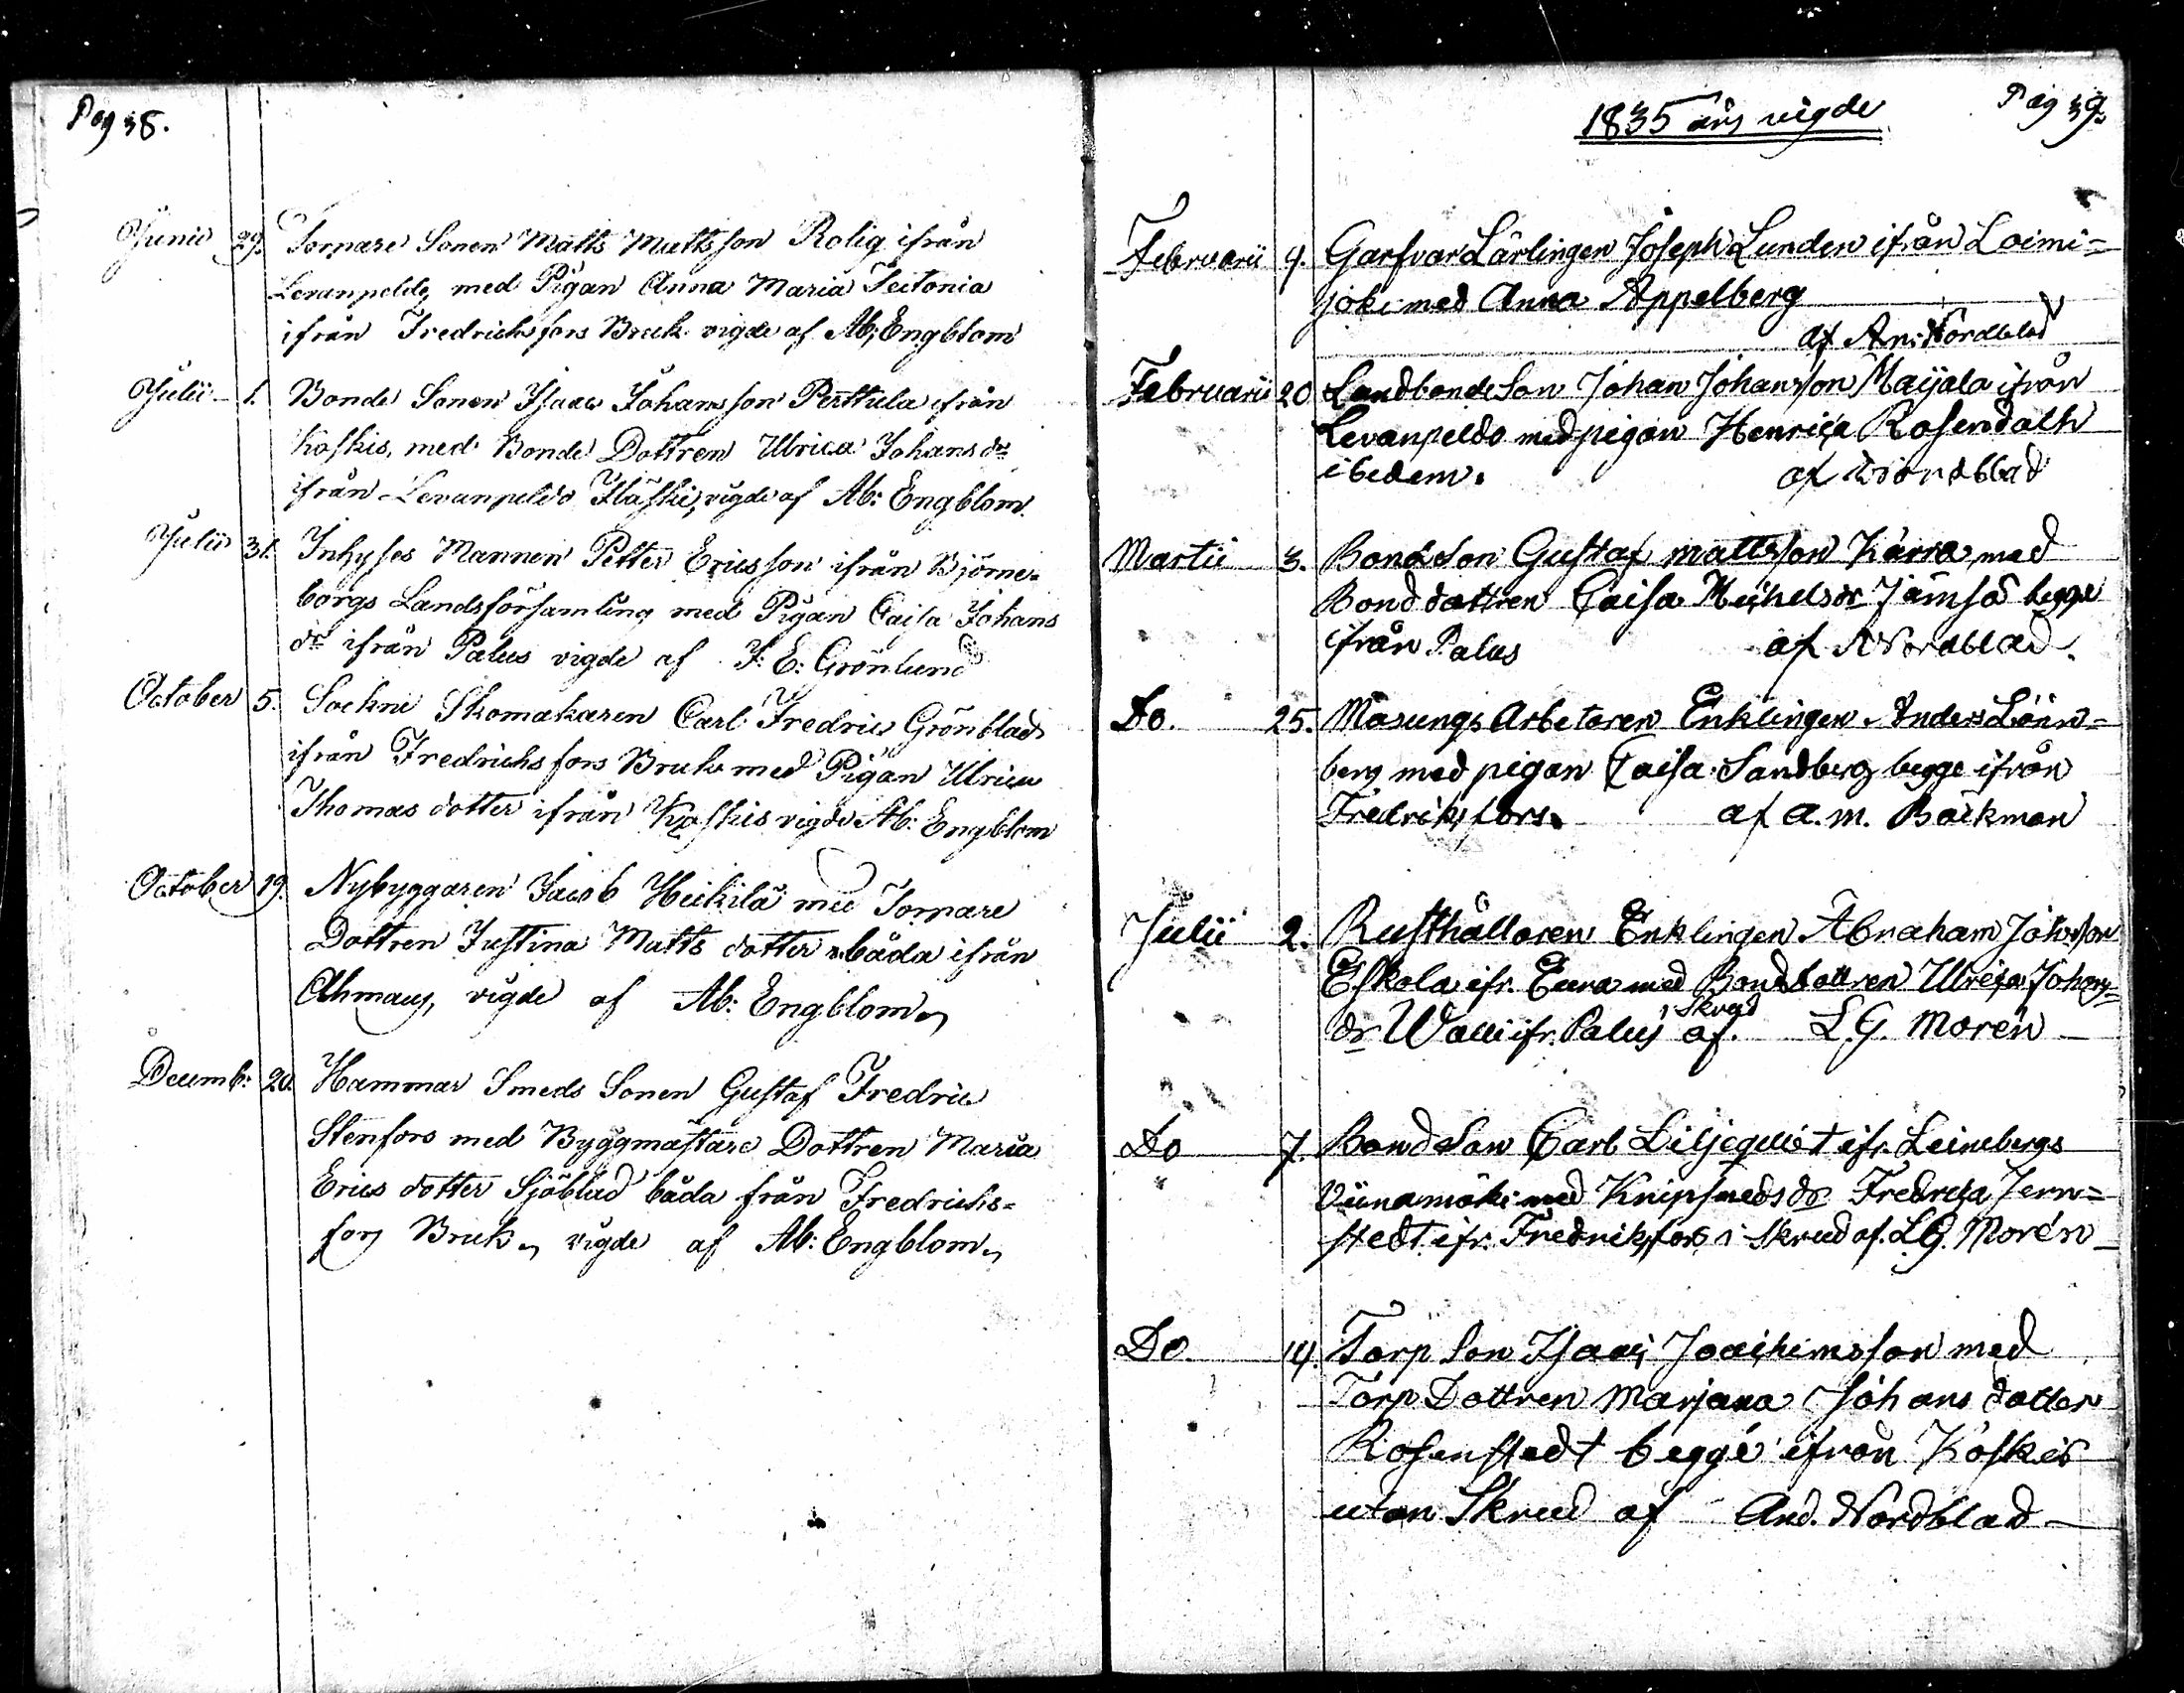 Pag 38.
Junii 29. Torpare Sonen Matts Mattsson Rolig ifrån
Levanpeldo, med Pigan Anna Maria Teitonia
ifrån Fredrichsfors Bruk vigde af Ab: Engblom
Julii 1. Bonde Sonen Isaac Johansson Perttula ifrån
Koskis, med Bonde Dottren Ulrica Johans dr
ifrån Levanpeldo vigde af Ab: Engblom.
Julii 31. Inhyses Mannen Petter Ericsson ifrån Björne-
borgs Landsförsamling med Pigan Caisa Johans
dr ifrån Palus vigde af J: E: Grönlund
October 5. Sockne Skomakaren Carl Fredric Grönblad
ifrån Fredrichsfors Bruk med Pigan Ulrica
Thomas dotter ifrån Koskis vigde Ab: Engblom
October 19. Nybyggaren Jacob Heikilä med Torpare
Dottren Justina Matts dotter båda ifrån
Ahmaus, vigde af Ab: Engblom
Decemb: 20. Hammar Smeds Sonen Gustaf Fredric
Stenfors med Byggmästare Dottren Maria
Erics dotter Sjöblad båda från Fredrichs-
fors Bruk, vigde af Ab: Engblom
Pag 39.
1835 års vigde
Februarii 4. Garfvar Lärlingen Joseph Lunden ifrån Loimi=
joki med Anna Appelberg
af An: Nordblad
Februarii 20 Landbonde Son Johan Johansson Maijala ifrån
Levanpeldo med pigan Henrica Rosendalh
ibedem. af Nordblad
Martii 3. Bondson Gustaf Mattsson Kärra, med
Bond dottren Caisa Michelsdr Jämsä begge
ifrån Palus af Nordblad.
Do. 25. Masungs Arbetaren Enklingen Anders Löön=
berg med pigan Caisa Sandberg begge ifrån
Fredriksfors. af A. M. Bäckman
Julii 2. Rusthållaren Enklingen Abraham Johsson
Eskola ifr. Eura med Bonddottren Ulrica Johans=
dr Walli ifr. Palus i Skrud af. L. G. Morén
Do 7. Bondson Carl Liljeqvist ifr. Leinebergs
Viinamäki med Knipsmedsdr Fredrica Jern=
stedt ifr. Fredriksfors i Skrud af. L G. Morén
Do. 14. Torp Son Isaac Joachimsson med
Torp Dottren Marjana Johans dotter
Rosenstedt begge ifrån Koskis
utan Skrud af And. Nordblad